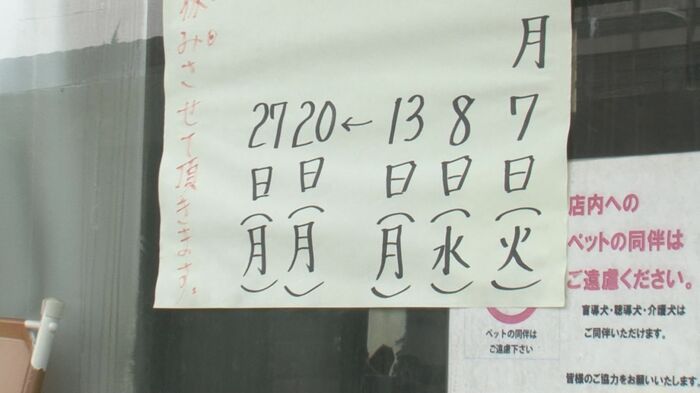 月
7日(火)
8日(水)
13日(月)
←
20日(月)
27日(月)
休みさせて頂きます。
店内への
ペットの同伴は
ご遠慮ください。
盲導犬・聴導犬・介護犬は
ご同伴いただけます。
ペットの同伴は
ご遠慮下さい
皆様のご協力をお願いいたします。